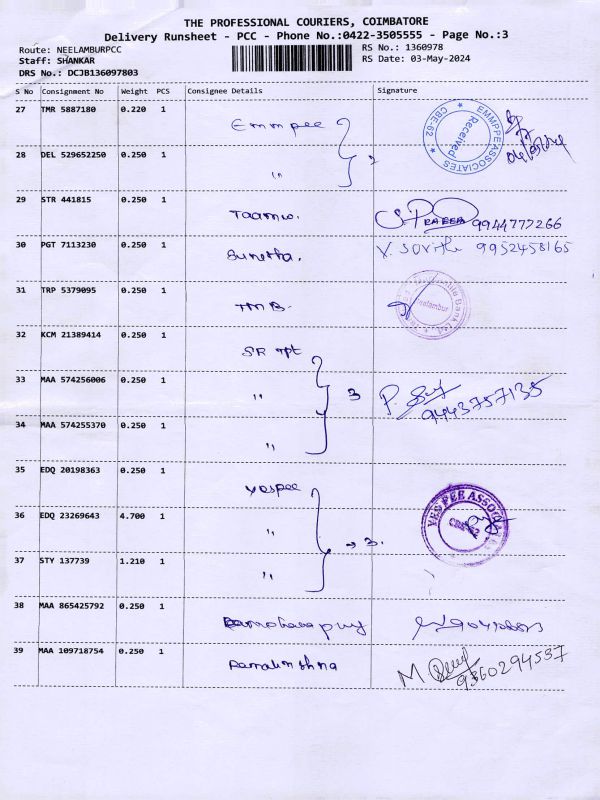 THE PROFESSIONAL COURIERS, COIMBATORE
Delivery Runsheet - PCC - Phone No.:0422-3505555 - Page No.:3
Route: NEELAMBURPCC RS No.: 1360978
Staff: SHANKAR RS Date: 03-May-2024
DRS No.: DCJB136097803
S No Consignment No Weight PCS Consignee Details Signature
27 TMR 5887180 0.220 1 Emmpee EMMPPE ASSOCIATES * CBE-62 * Received
28 DEL 529652250 0.250 1 "
29 STR 441815 0.250 1 9944777266
30 PGT 7113230 0.250 1 Sunetha. 9952458165
31 TRP 5379095 0.250 1 TMB.
32 KCM 21389414 0.250 1 SR tpt
33 MAA 574256006 0.250 1 " 3 9443757135
34 MAA 574255370 0.250 1 "
35 EDQ 20198363 0.250 1 yespee
36 EDQ 23269643 4.700 1 " → 3. YES PEE ASSOCIATES CBE-62
37 STY 137739 1.210 1 "
38 MAA 865425792 0.250 1
39 MAA 109718754 0.250 1 Ramakrishna M 9360294537